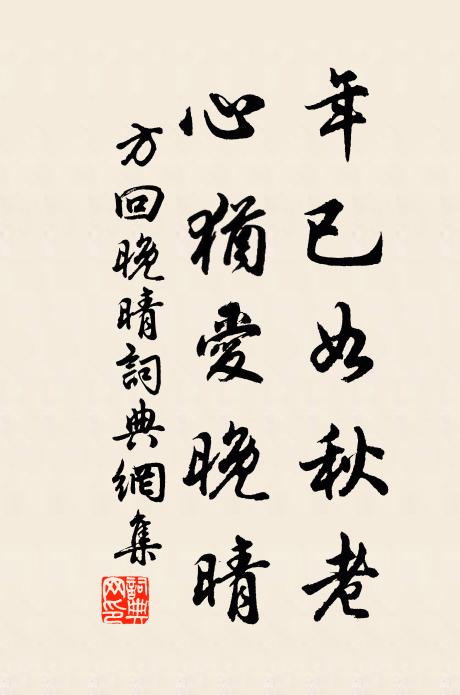 年已如秋老
心猶愛晚晴
方回晚晴詞典網集
詞典網印